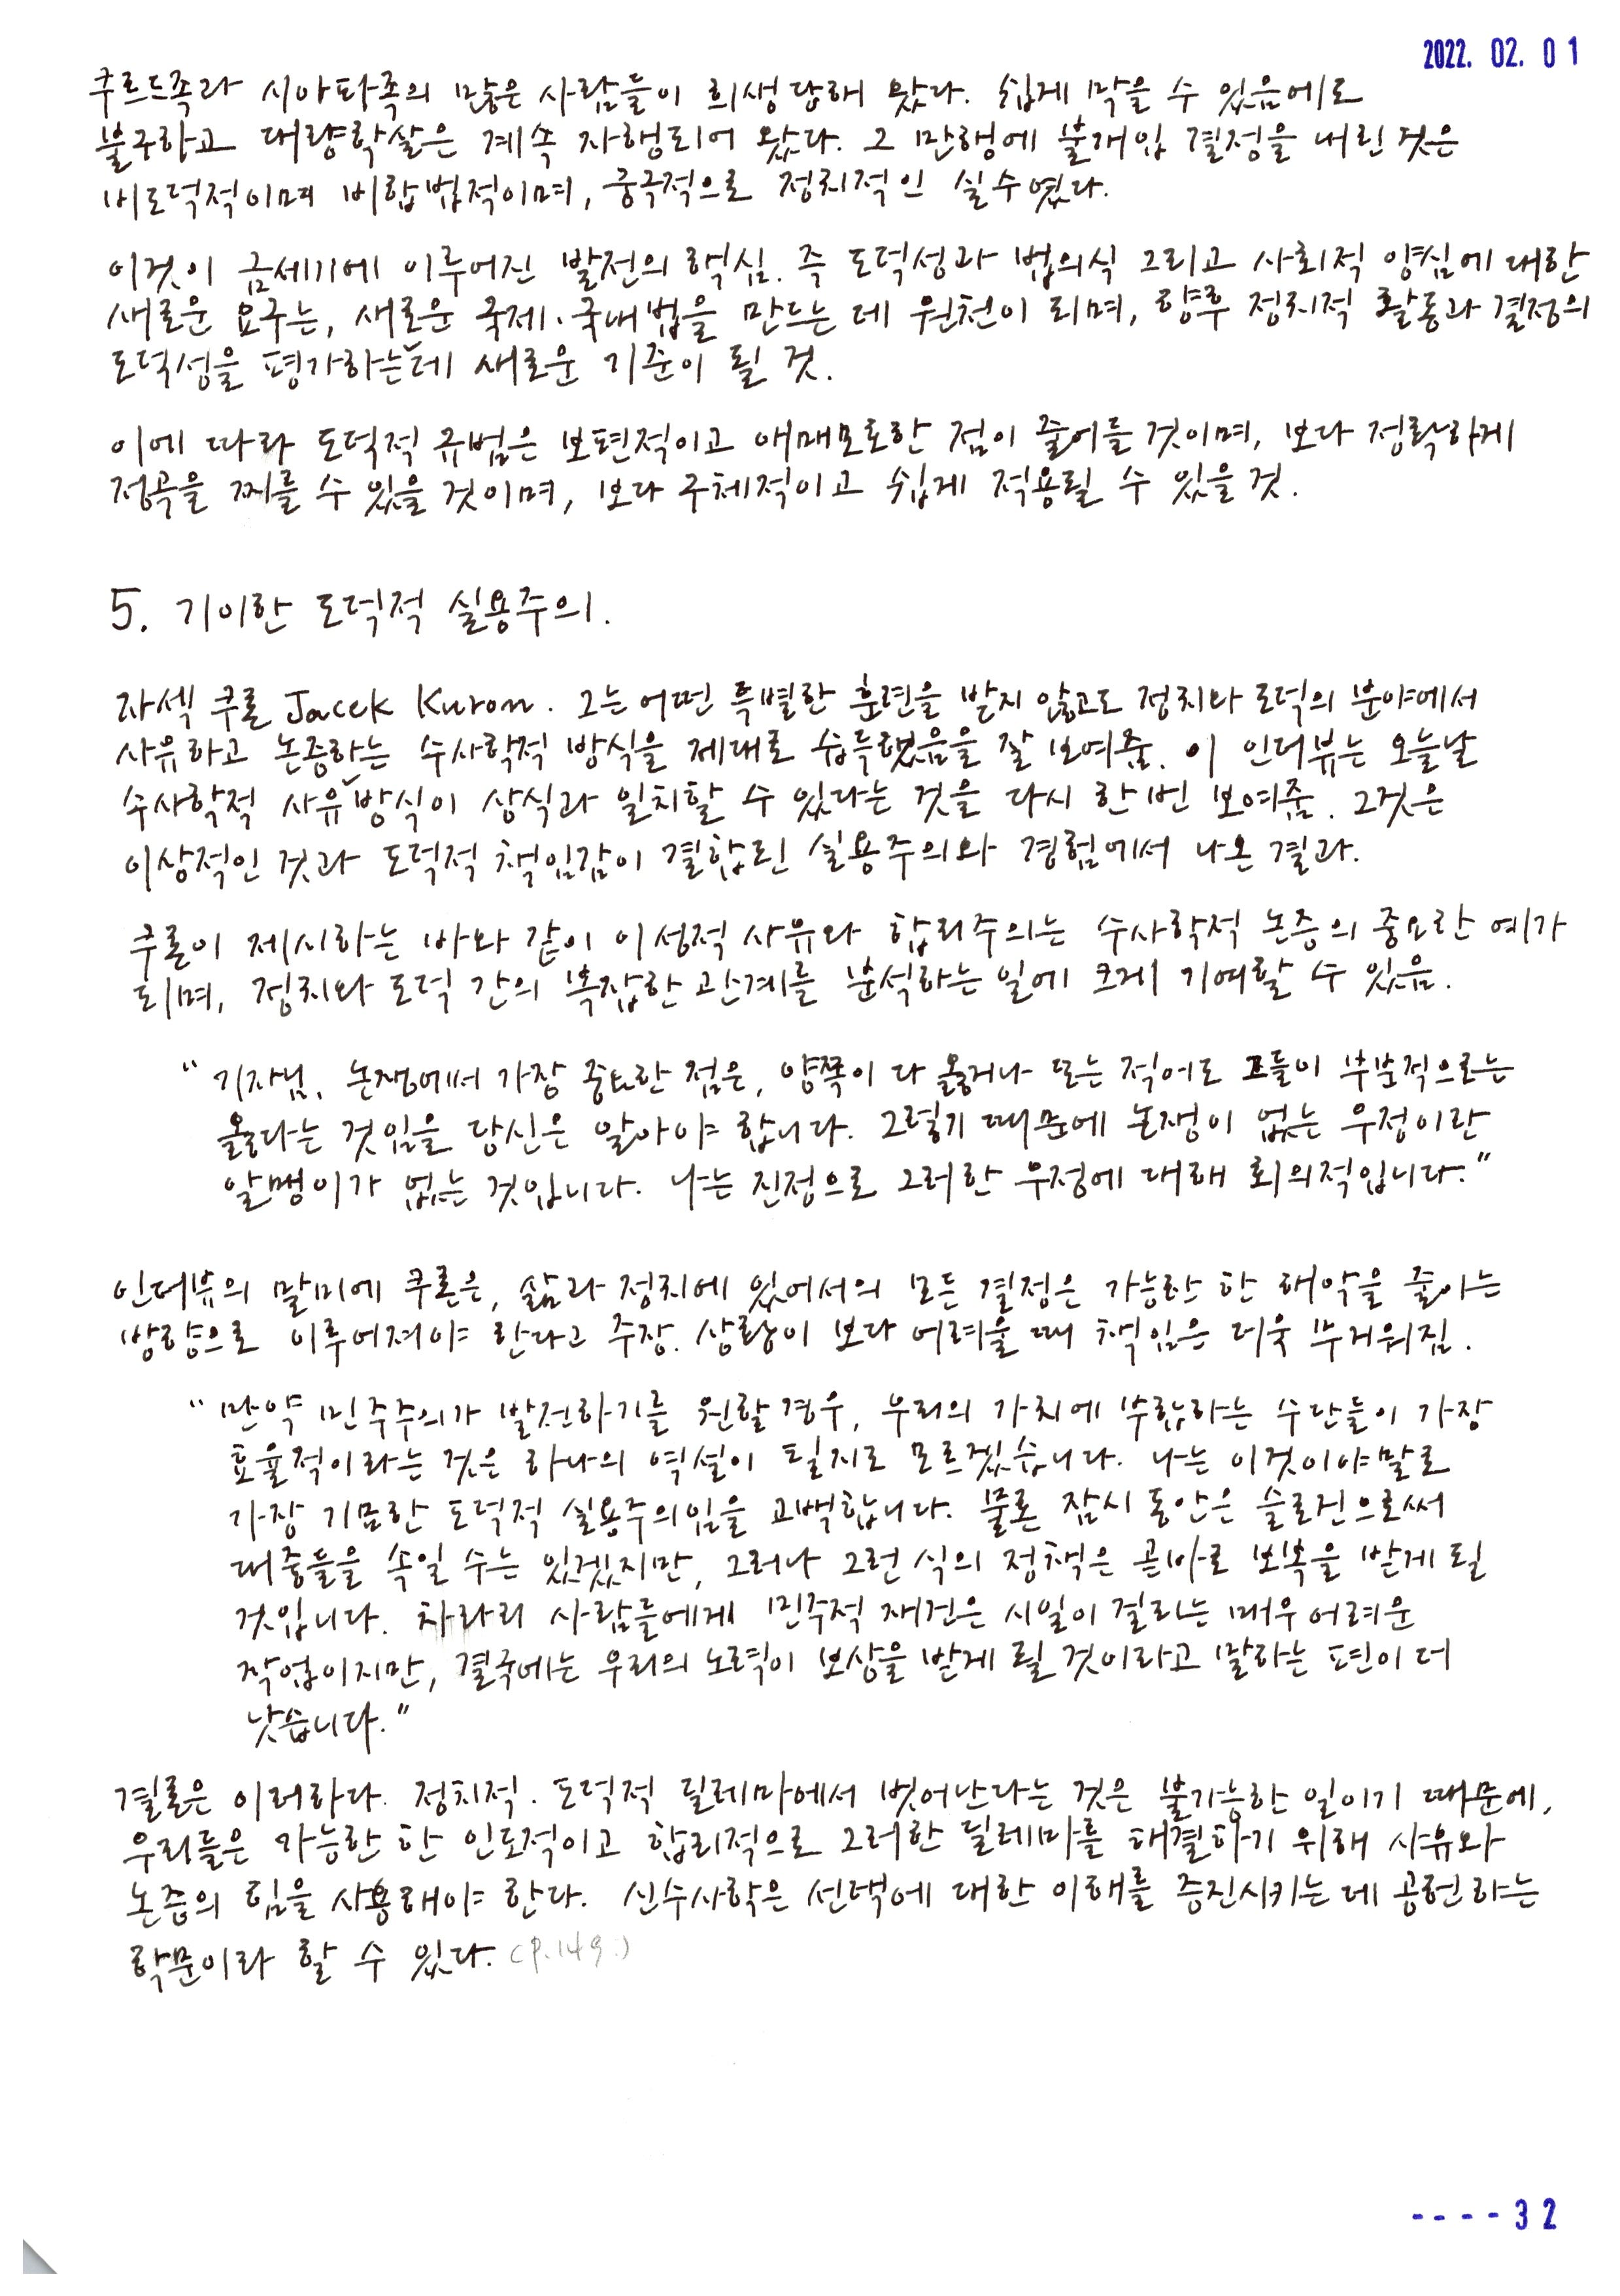 2022. 02. 01
쿠르드족과 시아파족의 많은 사람들이 희생당해 왔다. 쉽게 막을 수 있음에도
불구하고 대량학살은 계속 자행되어 왔다. 그 만행에 불개입 결정을 내린 것은
비도덕적이며 비합법적이며, 궁극적으로 정치적인 실수였다.
이것이 금세기에 이루어진 발전의 핵심. 즉 도덕성과 법의식 그리고 사회적 양심에 대한
새로운 요구는, 새로운 국제·국내법을 만드는 데 원천이 되며, 향후 정치적 활동과 결정의
도덕성을 평가하는데 새로운 기준이 될 것.
이에 따라 도덕적 규범은 보편적이고 애매모호한 점이 줄어들 것이며, 보다 정확하게
정곡을 찌를 수 있을 것이며, 보다 구체적이고 쉽게 적용될 수 있을 것.
5. 기이한 도덕적 실용주의.
자섹 쿠론 Jacek Kurom. 그는 어떤 특별한 훈련을 받지 않고도 정치나 도덕의 분야에서
사유하고 논증하는 수사학적 방식을 제대로 습득했음을 잘 보여줌. 이 인터뷰는 오늘날
수사학적 사유방식이 상식과 일치할 수 있다는 것을 다시 한번 보여줌. 그것은
이상적인 것과 도덕적 책임감이 결합된 실용주의와 경험에서 나온 결과.
쿠론이 제시하는 바와 같이 이성적 사유와 합리주의는 수사학적 논증의 중요한 예가
되며, 정치와 도덕 간의 복잡한 관계를 분석하는 일에 크게 기여할 수 있음.
"기자님, 논쟁에서 가장 중요한 점은, 양쪽이 다 옳거나 또는 적어도 그들이 부분적으로는
옳다는 것임을 당신은 알아야 합니다. 그렇기 때문에 논쟁이 없는 우정이란
알맹이가 없는 것입니다. 나는 진정으로 그러한 우정에 대해 회의적입니다."
인터뷰의 말미에 쿠론은, 삶과 정치에 있어서의 모든 결정은 가능한 한 해악을 줄이는
방향으로 이루어져야 한다고 주장. 상황이 보다 어려울 때 책임은 더욱 무거워짐.
"만약 민주주의가 발전하기를 원할 경우, 우리의 가치에 부합하는 수단들이 가장
효율적이라는 것은 하나의 역설이 될지도 모르겠습니다. 나는 이것이야말로
가장 기묘한 도덕적 실용주의임을 고백합니다. 물론 잠시 동안은 슬로건으로써
대중들을 속일 수는 있겠지만, 그러나 그런 식의 정책은 곧바로 보복을 받게 될
것입니다. 차라리 사람들에게 민주적 재건은 시일이 걸리는 매우 어려운
작업이지만, 결국에는 우리의 노력이 보상을 받게 될 것이라고 말하는 편이 더
낫습니다."
결론은 이러하다. 정치적·도덕적 딜레마에서 벗어난다는 것은 불가능한 일이기 때문에,
우리들은 가능한 한 인도적이고 합리적으로 그러한 딜레마를 해결하기 위해 사유와
논증의 힘을 사용해야 한다. 신수사학은 선택에 대한 이해를 증진시키는 데 공헌하는
학문이라 할 수 있다. (P.149.)
----32